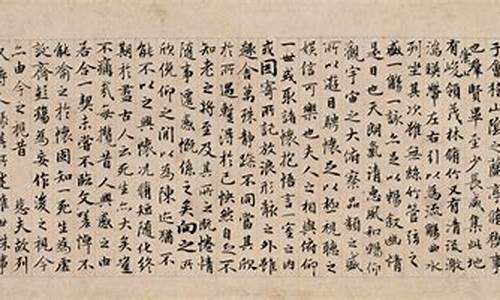 會稽山陰之蘭亭脩稧事
也羣賢畢至少長咸集此地
有崇山峻領茂林脩竹又有清流激
湍暎帶左右引以為流觴曲水
列坐其次雖無絲竹管弦之
盛一觴一詠亦足以暢敘幽情
是日也天朗氣清惠風和暢仰
觀宇宙之大俯察品類之盛
所以遊目騁懷足以極視聽之
娛信可樂也夫人之相與俯仰
一世或取諸懷抱悟言一室之內
或因寄所託放浪形骸之外雖
趣舍萬殊靜躁不同當其欣
於所遇蹔得於己怏然自足不
知老之將至及其所之既惓情
隨事遷感慨係之矣向之所
欣俛仰之閒以為陳迹猶不
能不以之興懷況脩短隨化終
期於盡古人云死生亦大矣豈
不痛哉每攬昔人興感之由
若合一契未嘗不臨文嗟悼不
能喻之於懷固知一死生為虛
誕齊彭殤為妄作後之視今
亦由今之視昔 悲夫故列
敘時人錄其所述雖世殊事